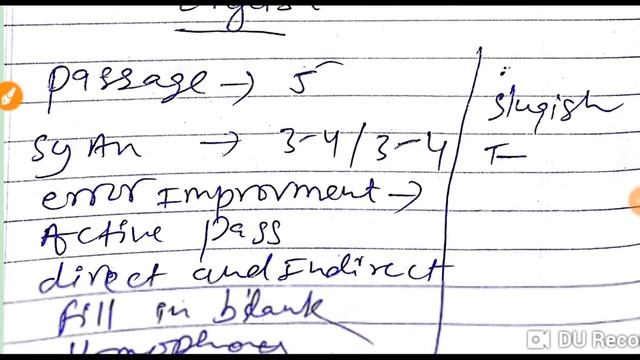 English
passage → 5
syAn → 3-4/3-4
error Improvment →
Active pass
direct and Indirect
fill in blank
Homophones
Slugish
T—
DU Reco